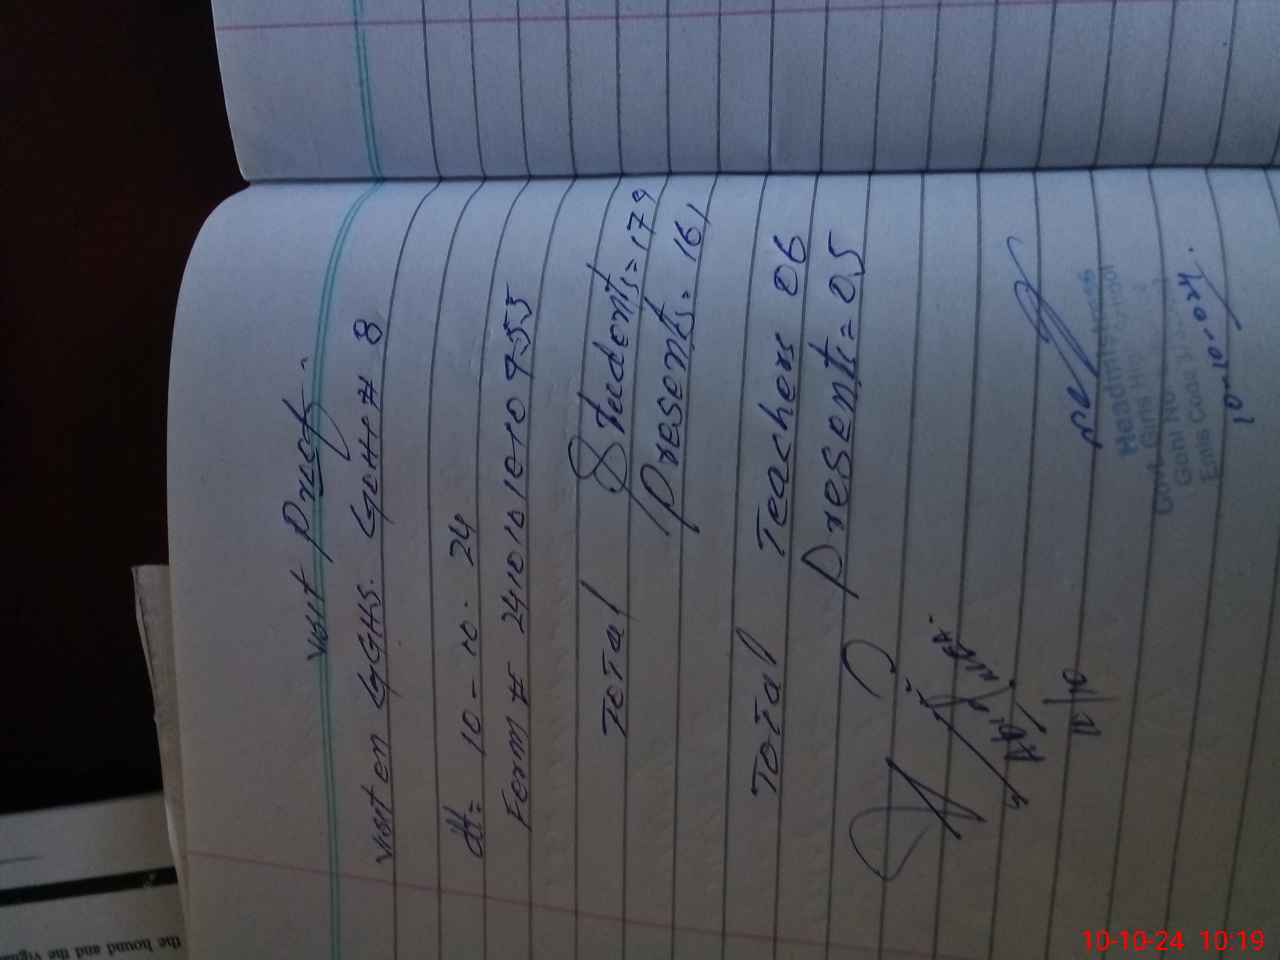 Visit Proof.
Visit on GGHS. Goth # 8
dt = 10 - 10 - 24
Form # 24101010109
Total Students = 179
Presents = 161
Total Teachers 06
Presents = 05
10/10
Headmistress
Govt. Girls High School
Goth No
Emis Code
10-10-024.
the hound and the
10-10-24 10:19